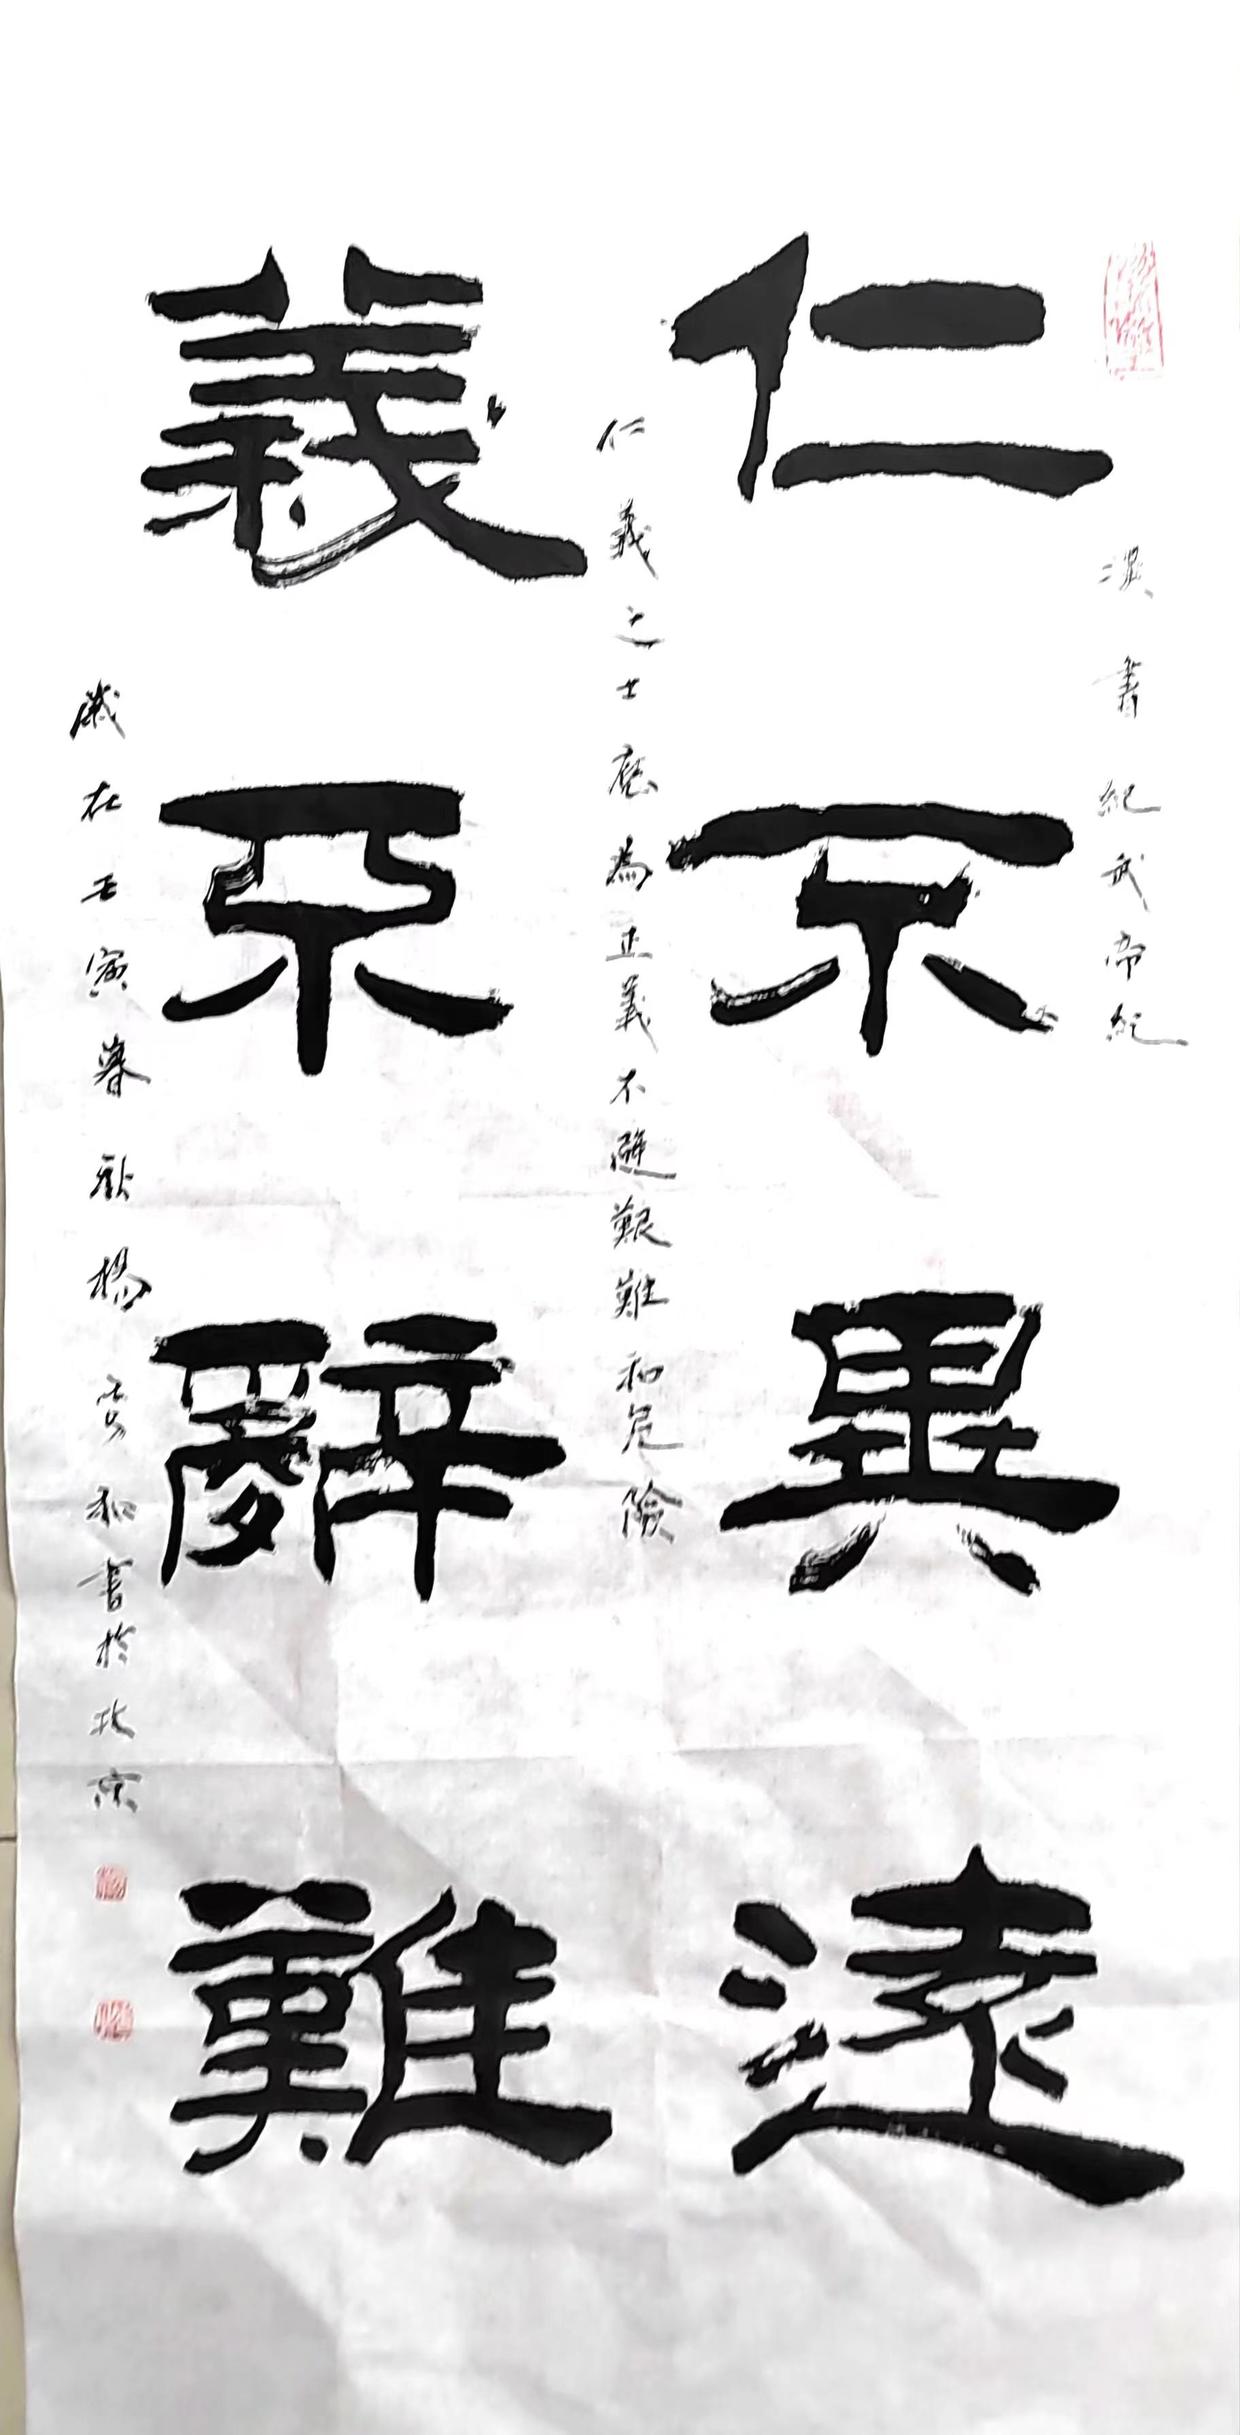 漢書紀武帝紀
仁不異遠
仁義之士應為正義不避艱難和危險
義不辭難
歲在壬寅暮秋楊雲和書於北京